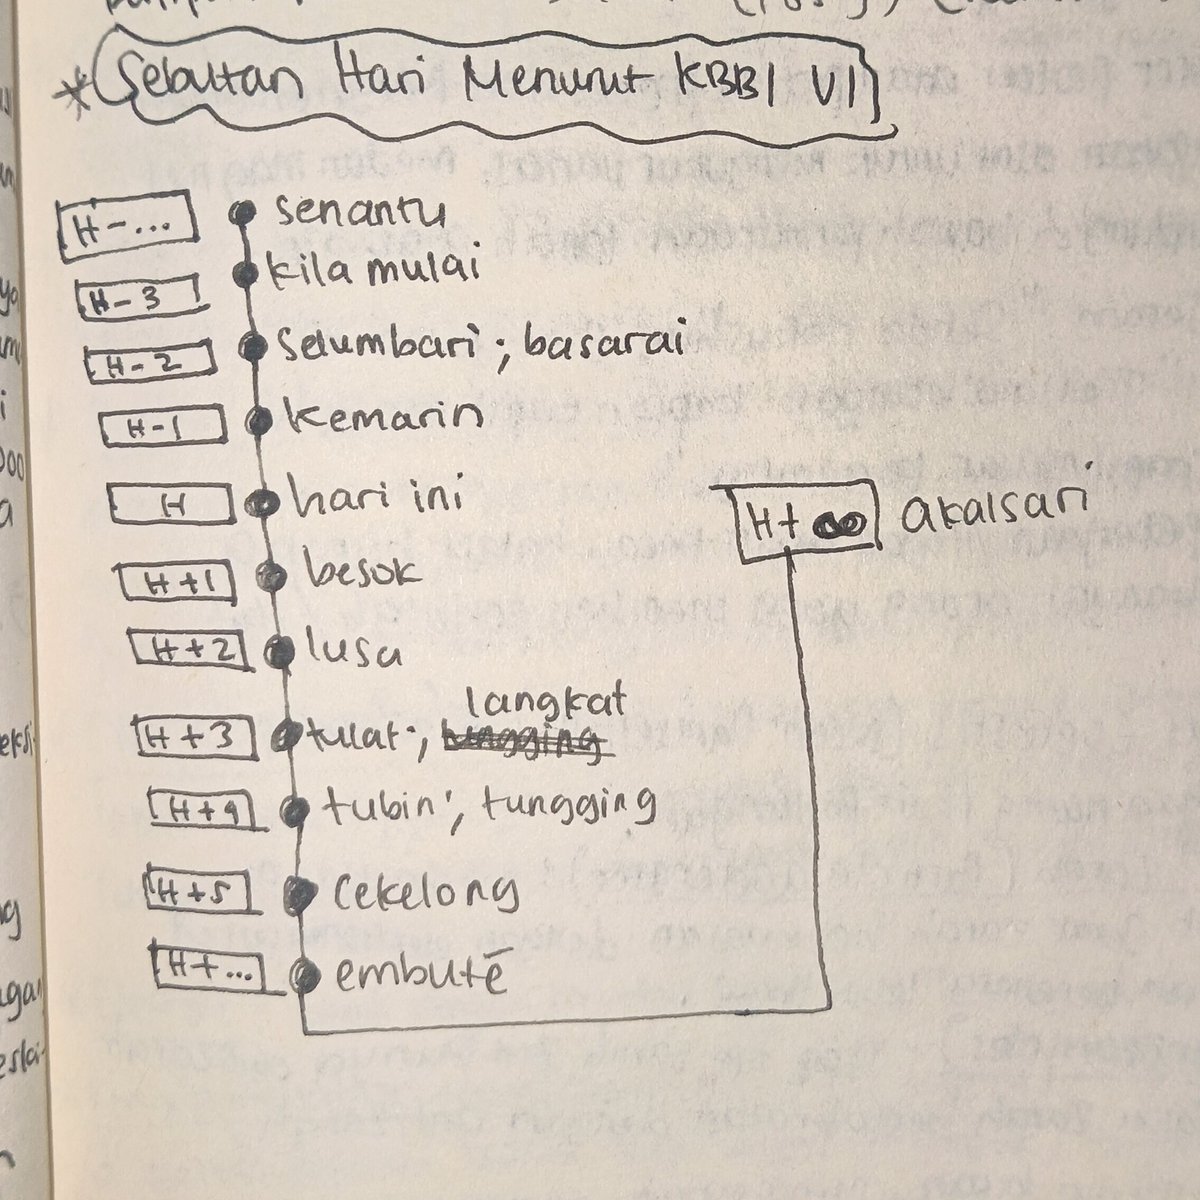 *Sebutan Hari Menurut KBBI VI
H-... senantu
H-3 kila mulai
H-2 selumbari; basarai
H-1 kemarin
H hari ini
H+∞ akalsari
H+1 besok
H+2 lusa
langkat
H+3 tulat;
H+4 tubin; tungging
H+5 cekelong
H+... embuté